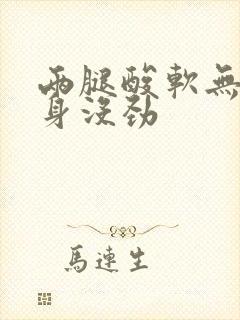 兩腿酸軟無
身沒勁
馬連生